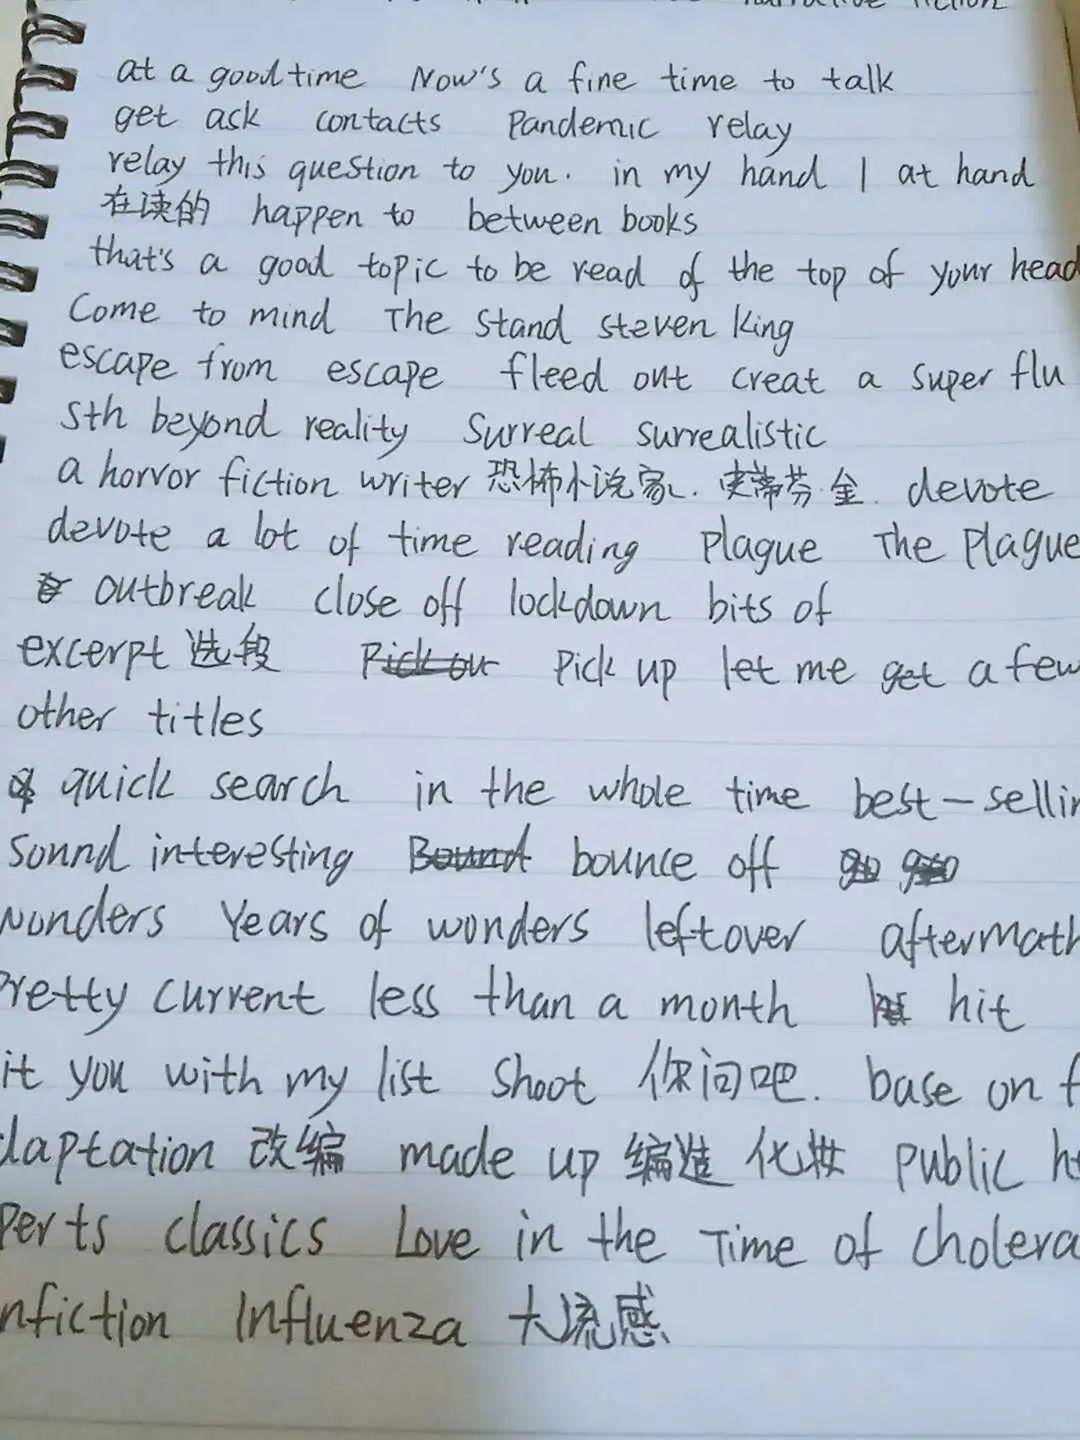 narrative fiction
at a good time Now's a fine time to talk
get ask contacts Pandemic relay
relay this question to you. in my hand / at hand
在读的 happen to between books
that's a good topic to be read of the top of your head
Come to mind The Stand Steven King
escape from escape fleed out creat a super flu
Sth beyond reality Surreal surrealistic
a horror fiction writer 恐怖小说家. 史蒂芬·金. devote
devote a lot of time reading plague The Plague
outbreak close off lockdown bits of
excerpt 选段 Pick ou Pick up let me get a few
other titles
quick search in the whole time best-sellin
Sound interesting Bound bounce off
wonders Years of wonders leftover aftermath
Pretty current less than a month hit
it you with my list Shoot 你问吧. base on f
daptation 改编 made up 编造 化妆 public he
perts classics Love in the Time of Cholera
nfiction Influenza 大流感